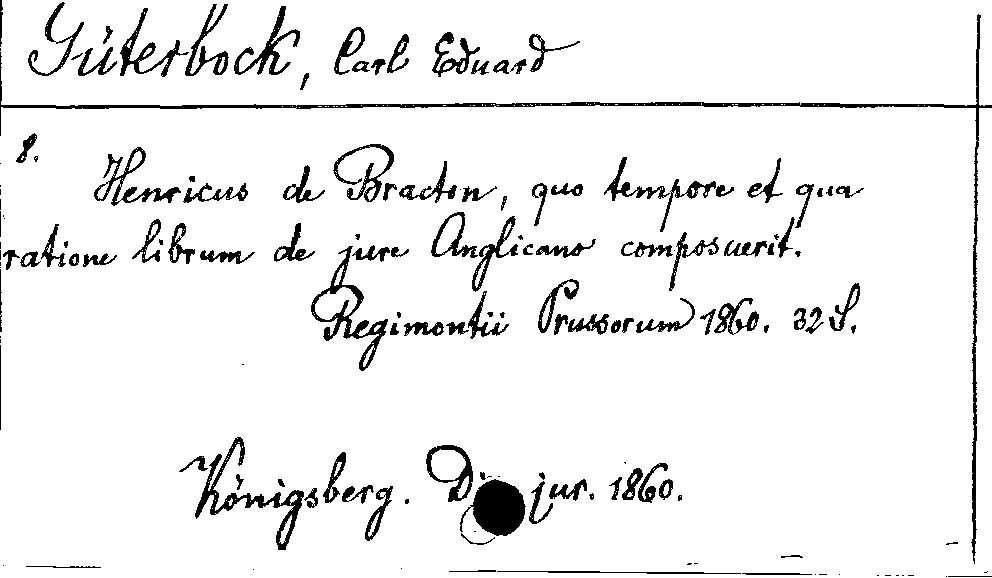 Güterbock, Carl Eduard
8.
Henricus de Bracton, quo tempore et qua
ratione librum de jure Anglicano composuerit.
Regimontii Prussorum 1860. 32 S.
Königsberg. jur. 1860.